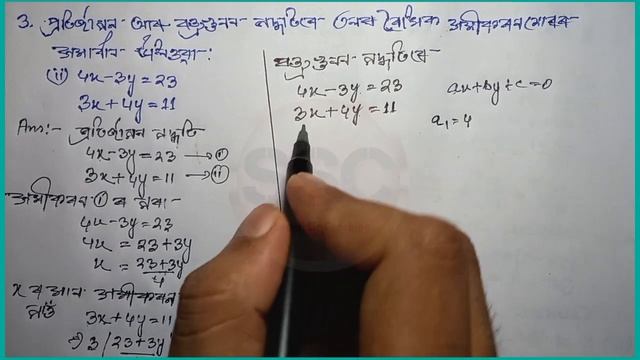 3. প্ৰতিস্থাপন আৰু বজ্ৰগুণন পদ্ধতিৰে তলৰ ৰৈখিক সমীকৰণবোৰৰ
সমাধান
(ii) 4x-3y=23
3x+4y=11
Ans:- প্ৰতিস্থাপন পদ্ধতি
4x-3y=23 → (i)
3x+4y=11 → (ii)
সমীকৰণ (i) ৰ পৰা
4x-3y=23
4x = 23+3y
x = 23+3y/4
x ৰ মান সমীকৰণ
3x+4y=11
⇒ 3(23+3y
বজ্ৰগুণন পদ্ধতিৰে
4x-3y=23
3x+4y=11
ax+by+c=0
a₁=4